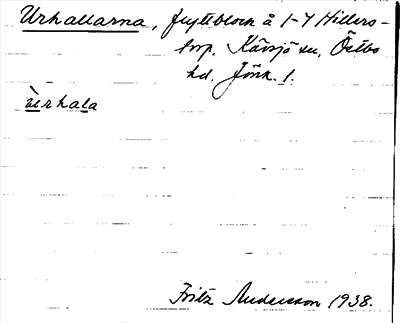 Urhallarna, flyttblock å 1-7 Hillers-
torp. Kävsjö sn, Östbo
hd. Jönk. l.
ùrhala
Fritz Andersson 1938.